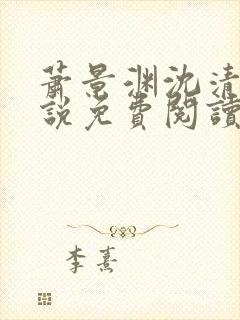 蕭景渊沈清
說免費閱讀
李熹